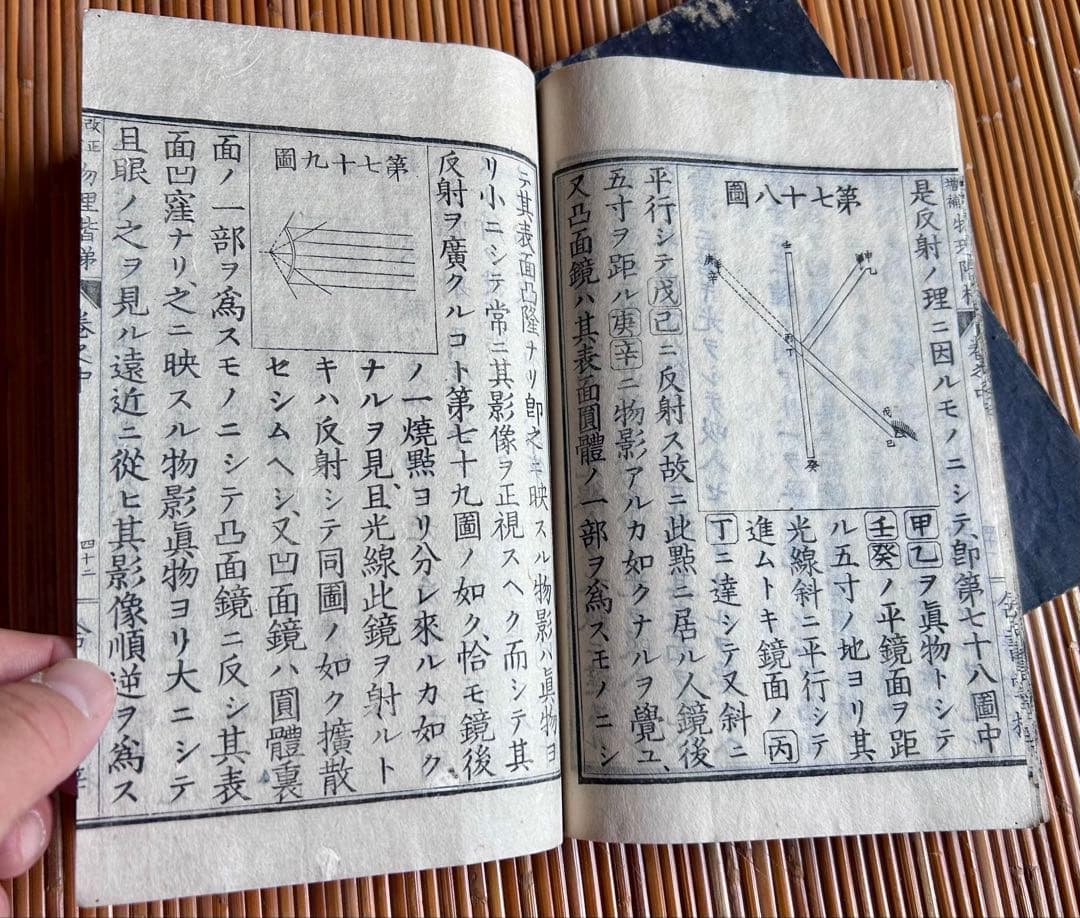 是反射ノ理ニ因ルモノニシテ、卽第七十八圖中
第七十八圖
甲乙ヲ眞物トシテ
壬癸ノ平鏡面ヲ距
ル五寸ノ地ヨリ其
光線斜ニ平行シテ
進ムトキ鏡面ノ丙
丁ニ達シテ又斜ニ
平行シテ戊己ニ反射ス故ニ此點ニ居ル人鏡後
五寸ヲ距ル庚辛ニ物影アルカ如クナルヲ覺ユ、
又凸面鏡ハ其表面圓體ノ一部ヲ爲スモノニシ
テ其表面凸隆ナリ卽之ニ映スル物影ハ眞物ヨ
リ小ニシテ常ニ其影像ヲ正視スヘク而シテ其
反射ヲ廣クルコト第七十九圖ノ如ク、恰モ鏡後
第七十九圖
ノ一燒點ヨリ分レ來ルカ如ク
ナルヲ見、且光線此鏡ヲ射ルト
キハ反射シテ同圖ノ如ク擴散
セシムヘシ、又凹面鏡ハ圓體裏
面ノ一部ヲ爲スモノニシテ凸面鏡ニ反シ其表
面凹窪ナリ、之ニ映スル物影眞物ヨリ大ニシテ
且眼ノ之ヲ見ル遠近ニ從ヒ其影像順逆ヲ爲ス
改正
物理階梯
卷之中
四十二